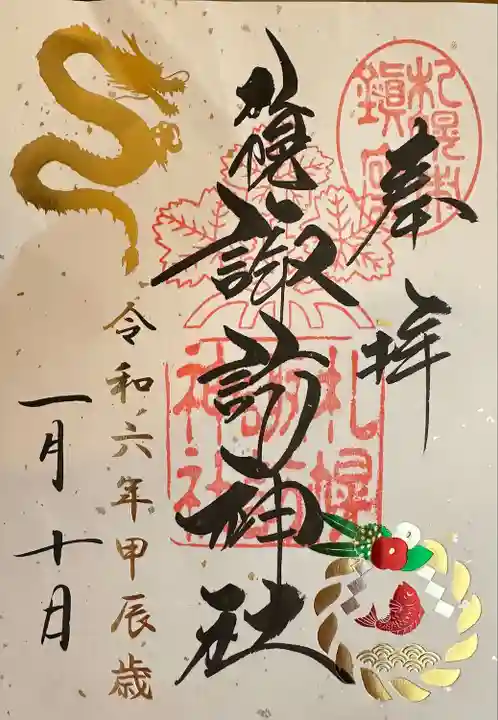 奉拝
札幌諏訪神社
令和六年甲辰歳
一月十日
札幌諏訪神社